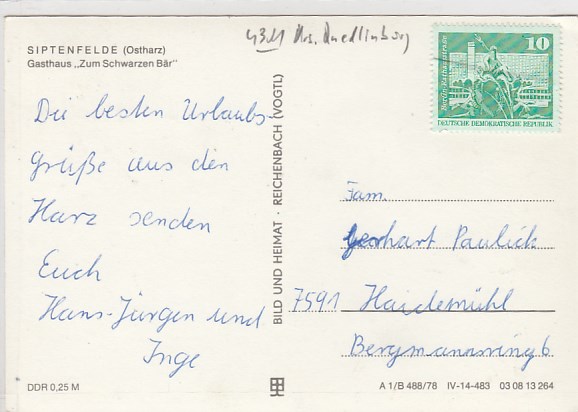 SIPTENFELDE (Ostharz)
Gasthaus „Zum Schwarzen Bär"
4311 Krs. Quedlinburg
10
Berlin, Rathausstraße
DEUTSCHE DEMOKRATISCHE REPUBLIK
Die besten Urlaubs-
grüße aus den
Harz senden
Euch
Hans-Jürgen und
Inge
BILD UND HEIMAT · REICHENBACH (VOGTL)
Fam.
Gerhart Paulick
7591 Haidemühl
Bergmannsring 6
DDR 0,25 M
A 1/B 488/78 IV-14-483 03 08 13 264